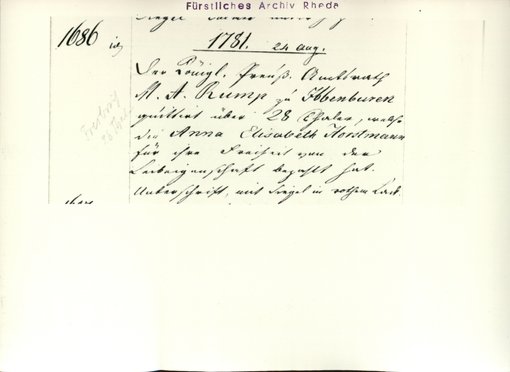 Fürstliches Archiv Rheda
1686
1781. 24 Aug.
Der Königl. Preuß. Amtsrath
M. A. Rump zu Ibbenburen
quittirt über 28 Thaler, welche
die Anna Elisabeth Horstmann
für ihre Freiheit von der
Leibeigenschaft bezahlt hat.
Unterschrift, mit Siegel in rothem Lack.